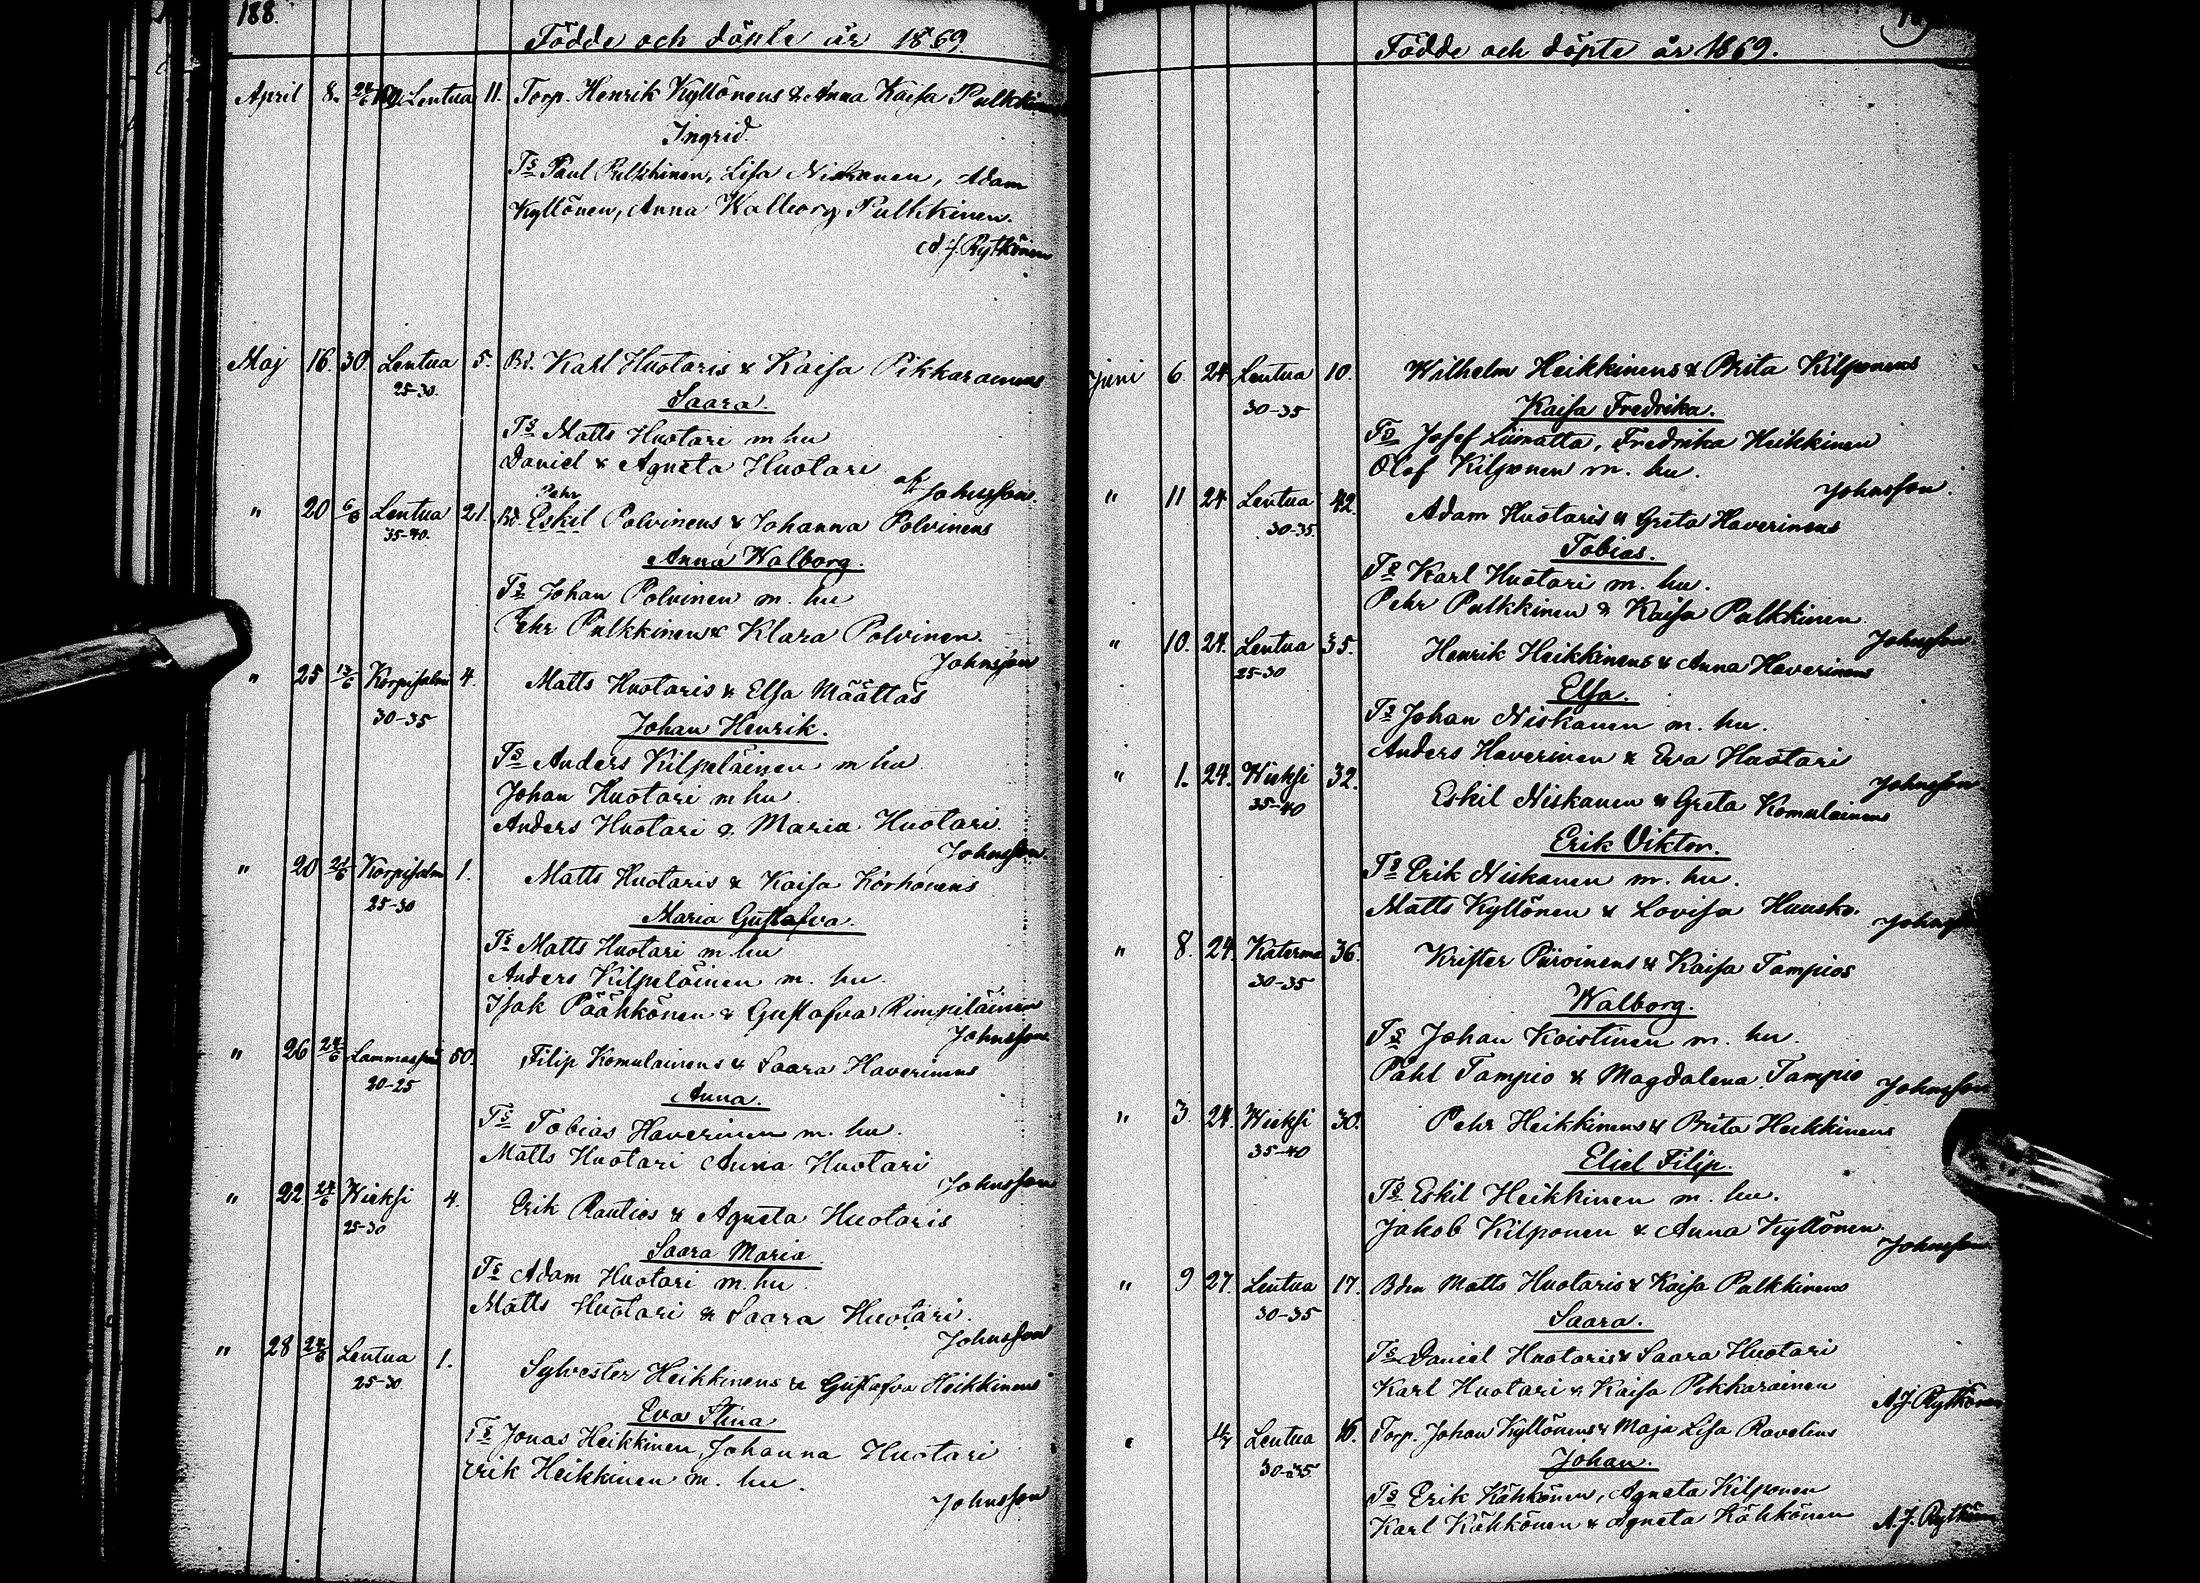 188.
Födde och döpte år 1869
April 8. 24/6 Lentua 11. Torp. Henrik Kyllönens & Anna Kaisa Pulkkinens
Ingrid.
Ts Paul Pulkkinen, Lisa Niskanen, Adam
Kyllönen, Anna Walborg Pulkkinen.
A. J. Rytkönen
Maj 16. 30. Lentua 5. Bd. Karl Huotaris & Kaisa Pikkarainens
25-30.
Saara.
Ts Matts Huotari m hu
Daniel & Agneta Huotari
af Johnsson.
Pehr
" 20 6/6 Lentua 21. Bd. Eskil Polvinens & Johanna Polvinens
35-40.
Anna Walborg.
Ts Johan Polvinen m. hu
Pehr Pulkkinen & Klara Polvinen.
Johnsson
" 25 13/6 Korpisalmi 4. Matts Huotaris & Elsa Määttäs
30-35
Johan Henrik.
Ts Anders Kilpeläinen m hu
Johan Huotari m hu
Anders Huotari & Maria Huotari.
Johnsson.
" 20 21/6 Korpisalm 1. Matts Huotaris & Kaisa Korhonens
25-30
Maria Gustafva.
Ts Matts Huotari m. hu
Anders Kilpeläinen m. hu.
Isak Pääkkönen & Gustafva Rimpiläinen
Johnsson
" 26 24/6 50. Filip Komulainens & Saara Haverinens
20-25
Anna.
Ts Tobias Haverinen m. hu.
Matts Huotari Anna Huotari
Johnsson
" 22 24/6 Wieksi 4. Erik Rautios & Agneta Huotaris
25-30
Saara Maria
Ts Adam Huotari m. hu
Matts Huotari & Saara Huotari.
Johnsson
" 28 24/6 Lentua 1. Sylvester Heikkinens & Gustafva Heikkinens
25-30.
Eva Stina
Ts Jonas Heikkinen, Johanna Huotari
Erik Heikkinen m. hu.
Johnsson
Födde och döpte år 1869.
Juni 6. 24 Lentua 10. Wilhelm Heikkinens & Brita Kilponens
30-35
Kaisa Fredrika.
Ts Josef Liimatta, Fredrika Heikkinen
Olof Kilponen m. hu.
Johnsson.
" 11 24 Lentua 42. Adam Huotaris & Greta Haverinens
30-35.
Tobias.
Ts Karl Huotari m. hu.
Pehr Pulkkinen & Kaisa Pulkkinen.
Johnsson
" 10. 24. Lentua 35. Henrik Heikkinens & Anna Haverinens
25-30
Elsa.
Ts Johan Niskanen m. hu.
Anders Haverinen & Eva Huotari
Johnsson
" 1. 24. Wieksi 32. Eskil Niskanen & Greta Komulainens
35-40
Erik Viktor.
Ts Erik Niskanen m. hu.
Matts Kyllönen & Lovisa Huusko.
Johnsson
" 8. 24. Katerma 36. Krister Piiroinens & Kaisa Tampios
30-35
Walborg.
Ts Johan Koistinen m. hu.
Pahl Tampio & Magdalena Tampio
Johnsson
" 3 24. Wieksi 30. Pehr Heikkinens & Brita Heikkinens
35-40
Eliel Filip.
Ts Eskil Heikkinen m. hu.
Jakob Kilponen & Anna Kyllönen.
Johnsson
" 9 27. Lentua 17. Bden Matts Huotaris & Kaisa Pulkkinens
30-35
Saara.
Ts Daniel Huotaris & Saara Huotari
Karl Huotari & Kaisa Pikkarainen
A. J. Rytkönen
Lentua 16. Torp. Johan Kyllönens & Maja Lisa Ravelins
30-35
Johan.
Ts Erik Kähkönen, Agneta Kilponen
Karl Kähkönen & Agneta Kähkönen
A. J. Rytkönen